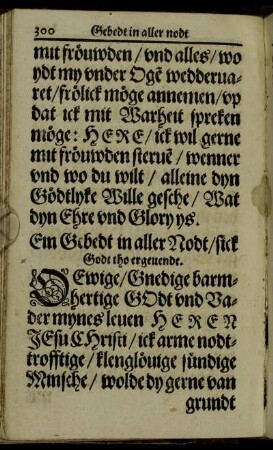 300 Gebedt in aller nodt
mit fröuwden / vnd alles / wo
ydt my vnder Ogē wedderua-
ret / frölick möge annemen / vp
dat ick mit Warheit spreken
möge: HERE / ick wil gerne
mit fröuwden steruē / wenner
vnd wo du wilt / alleine dyn
Gödtlyke Wille gesche / Wat
dyn Ehre vnd Glory ys.
Ein Gebedt in aller Nodt / sick
Godt tho ergeuende.
O Ewige / Gnedige barm-
hertige GOdt vnd Va-
der mynes leuen HEREN
JEsu CHristi / ick arme nodt-
trofftige / klenglöuige sündige
Minsche / wolde dy gerne van
grundt